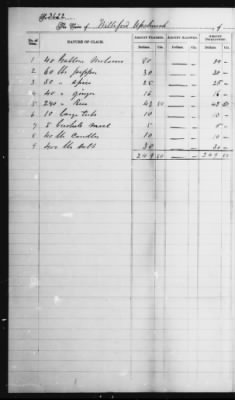 No 3622
The Case of Williford Upchurch of
No. of NATURE OF CLAIM. AMOUNT CLAIMED. AMOUNT ALLOWED. AMOUNT DISALLOWED.
Dollars. Cts. Dollars. Cts. Dollars. Cts.
1 40 Gallons Molasses 80 — — 80 —
2 60 lbs pepper 30 — — 30 —
3 50 " spice 25 — — 25 —
4 40 " ginger 16 — — 16 —
5 240 " Rice 43 50 — — 43 50
6 10 large tubs 10 — — 10 —
7 5 bushels 5 — — 5 —
8 40 lbs candles 10 — — 10 —
9 400 lbs salt 30 — — 30 —
249 50 249 50